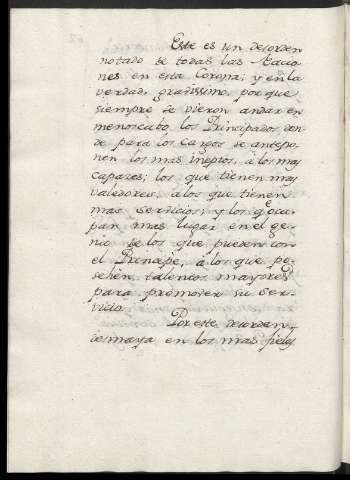 Este es un desorden
notado de todas las Nacio
nes en esta Corona; y en la
verdad, gravissimo, porque
siempre se vieron andar en
menoscabo los Principados don
de para los cargos se antepo-
nen los mas ineptos, à los mas
capazes; los que tienen mas
valedores, à los que tienen
mas servicios; y los q̃ ocu-
pan mas lugar en el ge-
nio de los que pueden con
el Principe, à los que po-
sehen talentos mayores
para promover su Ser-
vicio.
Por este desorden
desmaya en los mas fieles